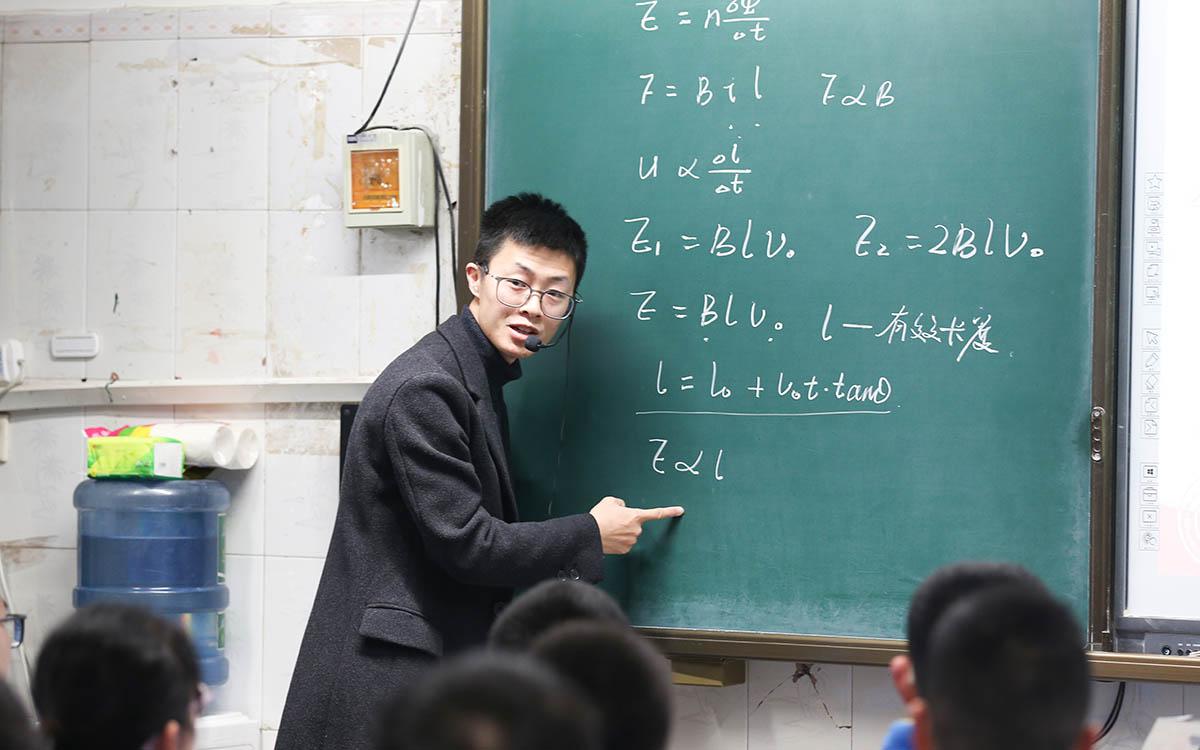 E = n ΔΦ/Δt
F = B i l    F ∝ B
u ∝ Δi/Δt
E₁ = B l v₀    E₂ = 2B l v₀
E = B l v₀    l — 有效长度
l = l₀ + v₀t·tanθ
E ∝ l